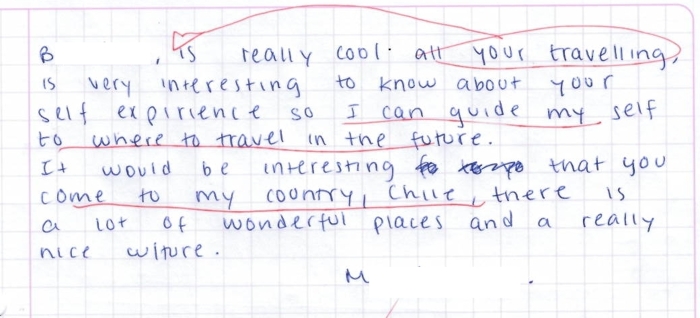 B , is really cool. all your travelling,
is very interesting to know about your
self expirience so I can guide my self
to where to travel in the future.
It would be interesting that you
come to my country, Chile, there is
a lot of wonderful places and a really
nice
M .